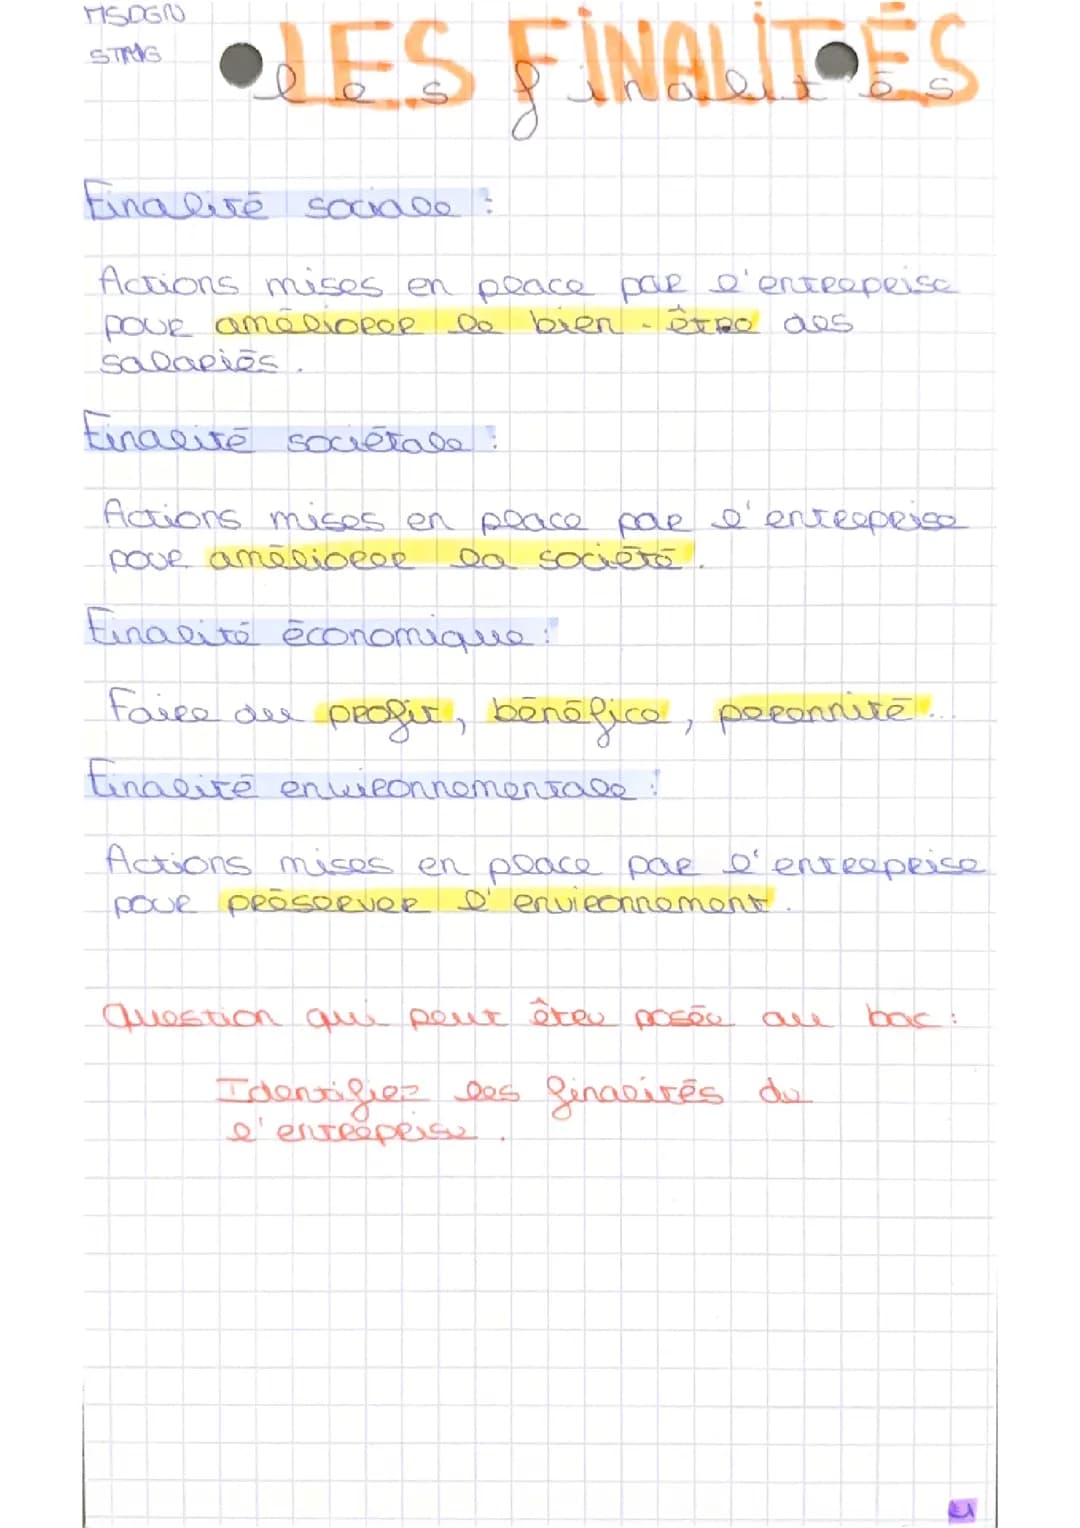 MSDGN
STMG
LES FINALITÉS
les finalités
Finalité sociale :
Actions mises en place par l'entreprise
pour améliorer le bien-être des
salariés.
Finalité sociétale :
Actions mises en place par l'entreprise
pour améliorer la société.
Finalité économique :
Faire du profit, bénéfice, perennité...
Finalité environnementale :
Actions mises en place par l'entreprise
pour préserver l'environnement.
Question qui peut être posée au bac :
Identifiez les finalités de
l'entreprise.